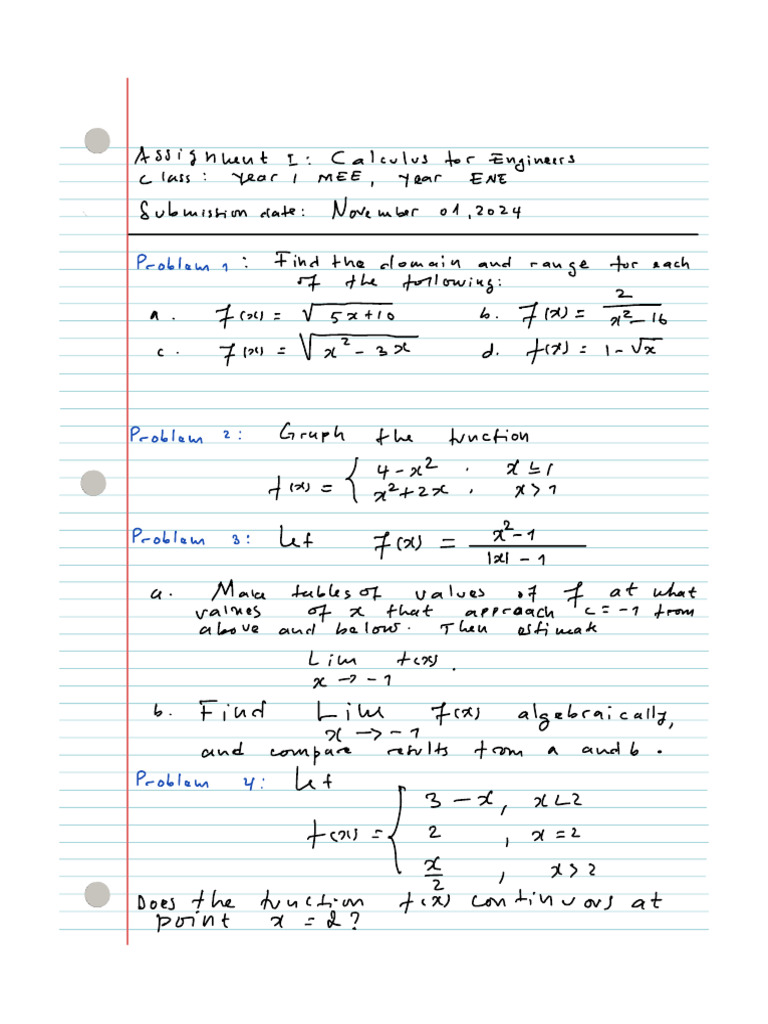 Assignment I: Calculus for Engineers
Class: Year 1 MEE, Year ENE
Submission date: November 01, 2024
Problem 1: Find the domain and range for each
of the following:
a. f(x) = √(5x+10) b. f(x) = 2/(x²-16)
c. f(x) = √(x² - 3x) d. f(x) = 1-√x
Problem 2: Graph the function
f(x) = { 4-x², x ≤ 1
x²+2x, x > 1
Problem 3: Let f(x) = (x²-1)/(|x| - 1)
a. Make tables of values of f at what
values of x that approach c=-1 from
above and below. Then estimate
Lim f(x).
x → -1
b. Find Lim f(x) algebraically,
x → -1
and compare results from a and b.
Problem 4: Let
f(x) = { 3 - x, x < 2
2, x = 2
x/2, x > 2
Does the function f(x) continuous at
point x = 2?